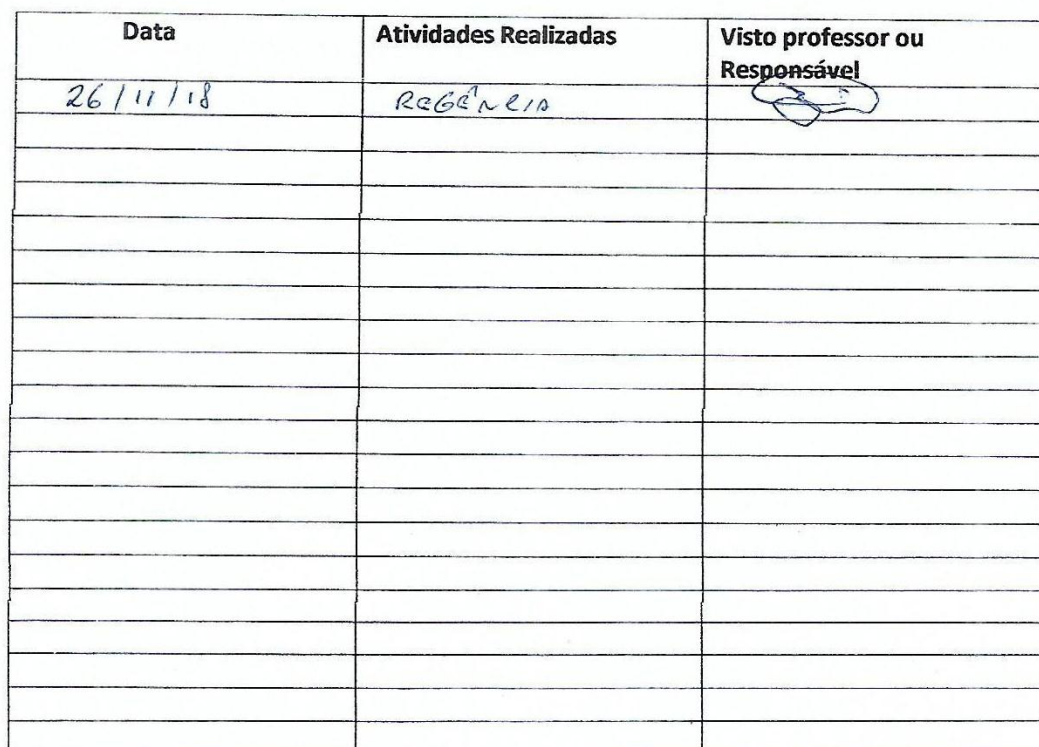 Data Atividades Realizadas Visto professor ou
Responsável
26/11/18 REGÊNCIA